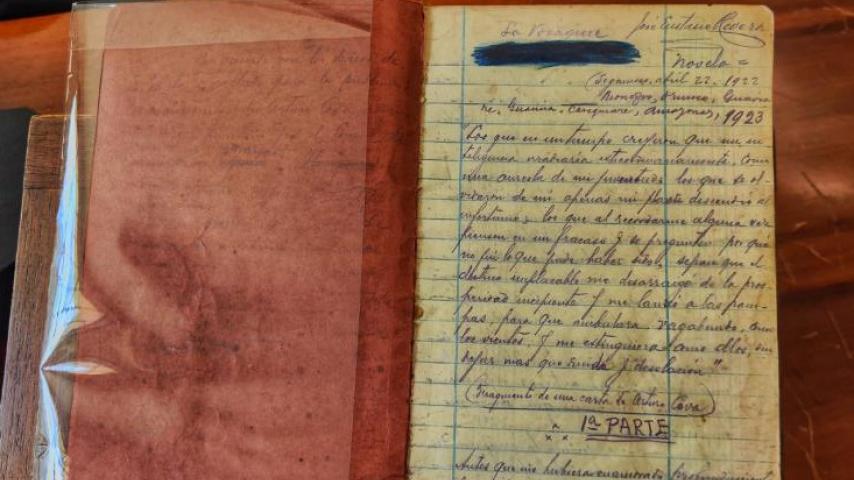 La Vorágine José Eustasio Rivera
Novela =
(Sogamoso, abril 22, 1922
Rionegro, Orinoco, Guavia
re, Guainía, Casiquiare, Amazonas, 1923
"Los que en un tiempo creyeron que mi in
teligencia irradiaría extraordinariamente, como
una aureola de mi juventud; los que se ol-
vidaron de mí apenas mi planta descendió al
infortunio; los que al recordarme alguna vez
piensen en mi fracaso y se pregunten por qué
no fuí lo que pude haber sido, sepan que el
destino implacable me desarraigó de la pros-
peridad incipiente y me lanzó a las pam-
pas, para que ambulara, vagabundo, como
los vientos, y me extinguiera como ellos, sin
dejar mas que ruido y desolación"
(Fragmento de una carta de Arturo Cova)
1ª PARTE
Antes que me hubiera enamorado